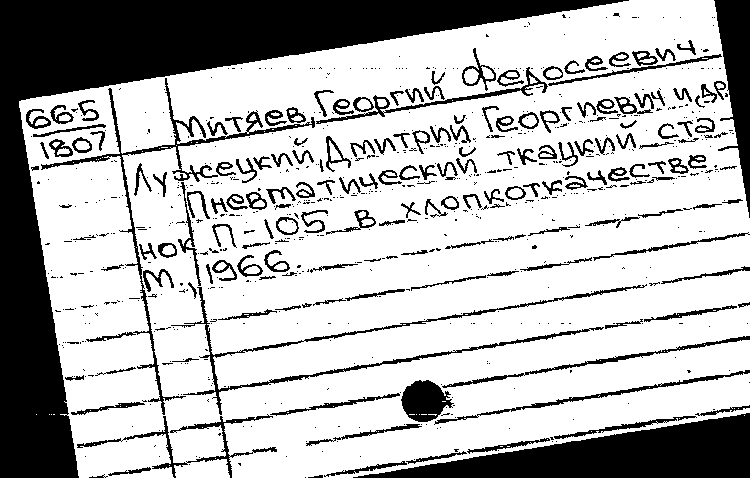 66-5
1807
Митяев, Георгий Федосеевич.
Лужецкий, Дмитрий Георгиевич и др.
Пневматический ткацкий ста-
нок П-105 в хлопкоткачестве.
М., 1966.